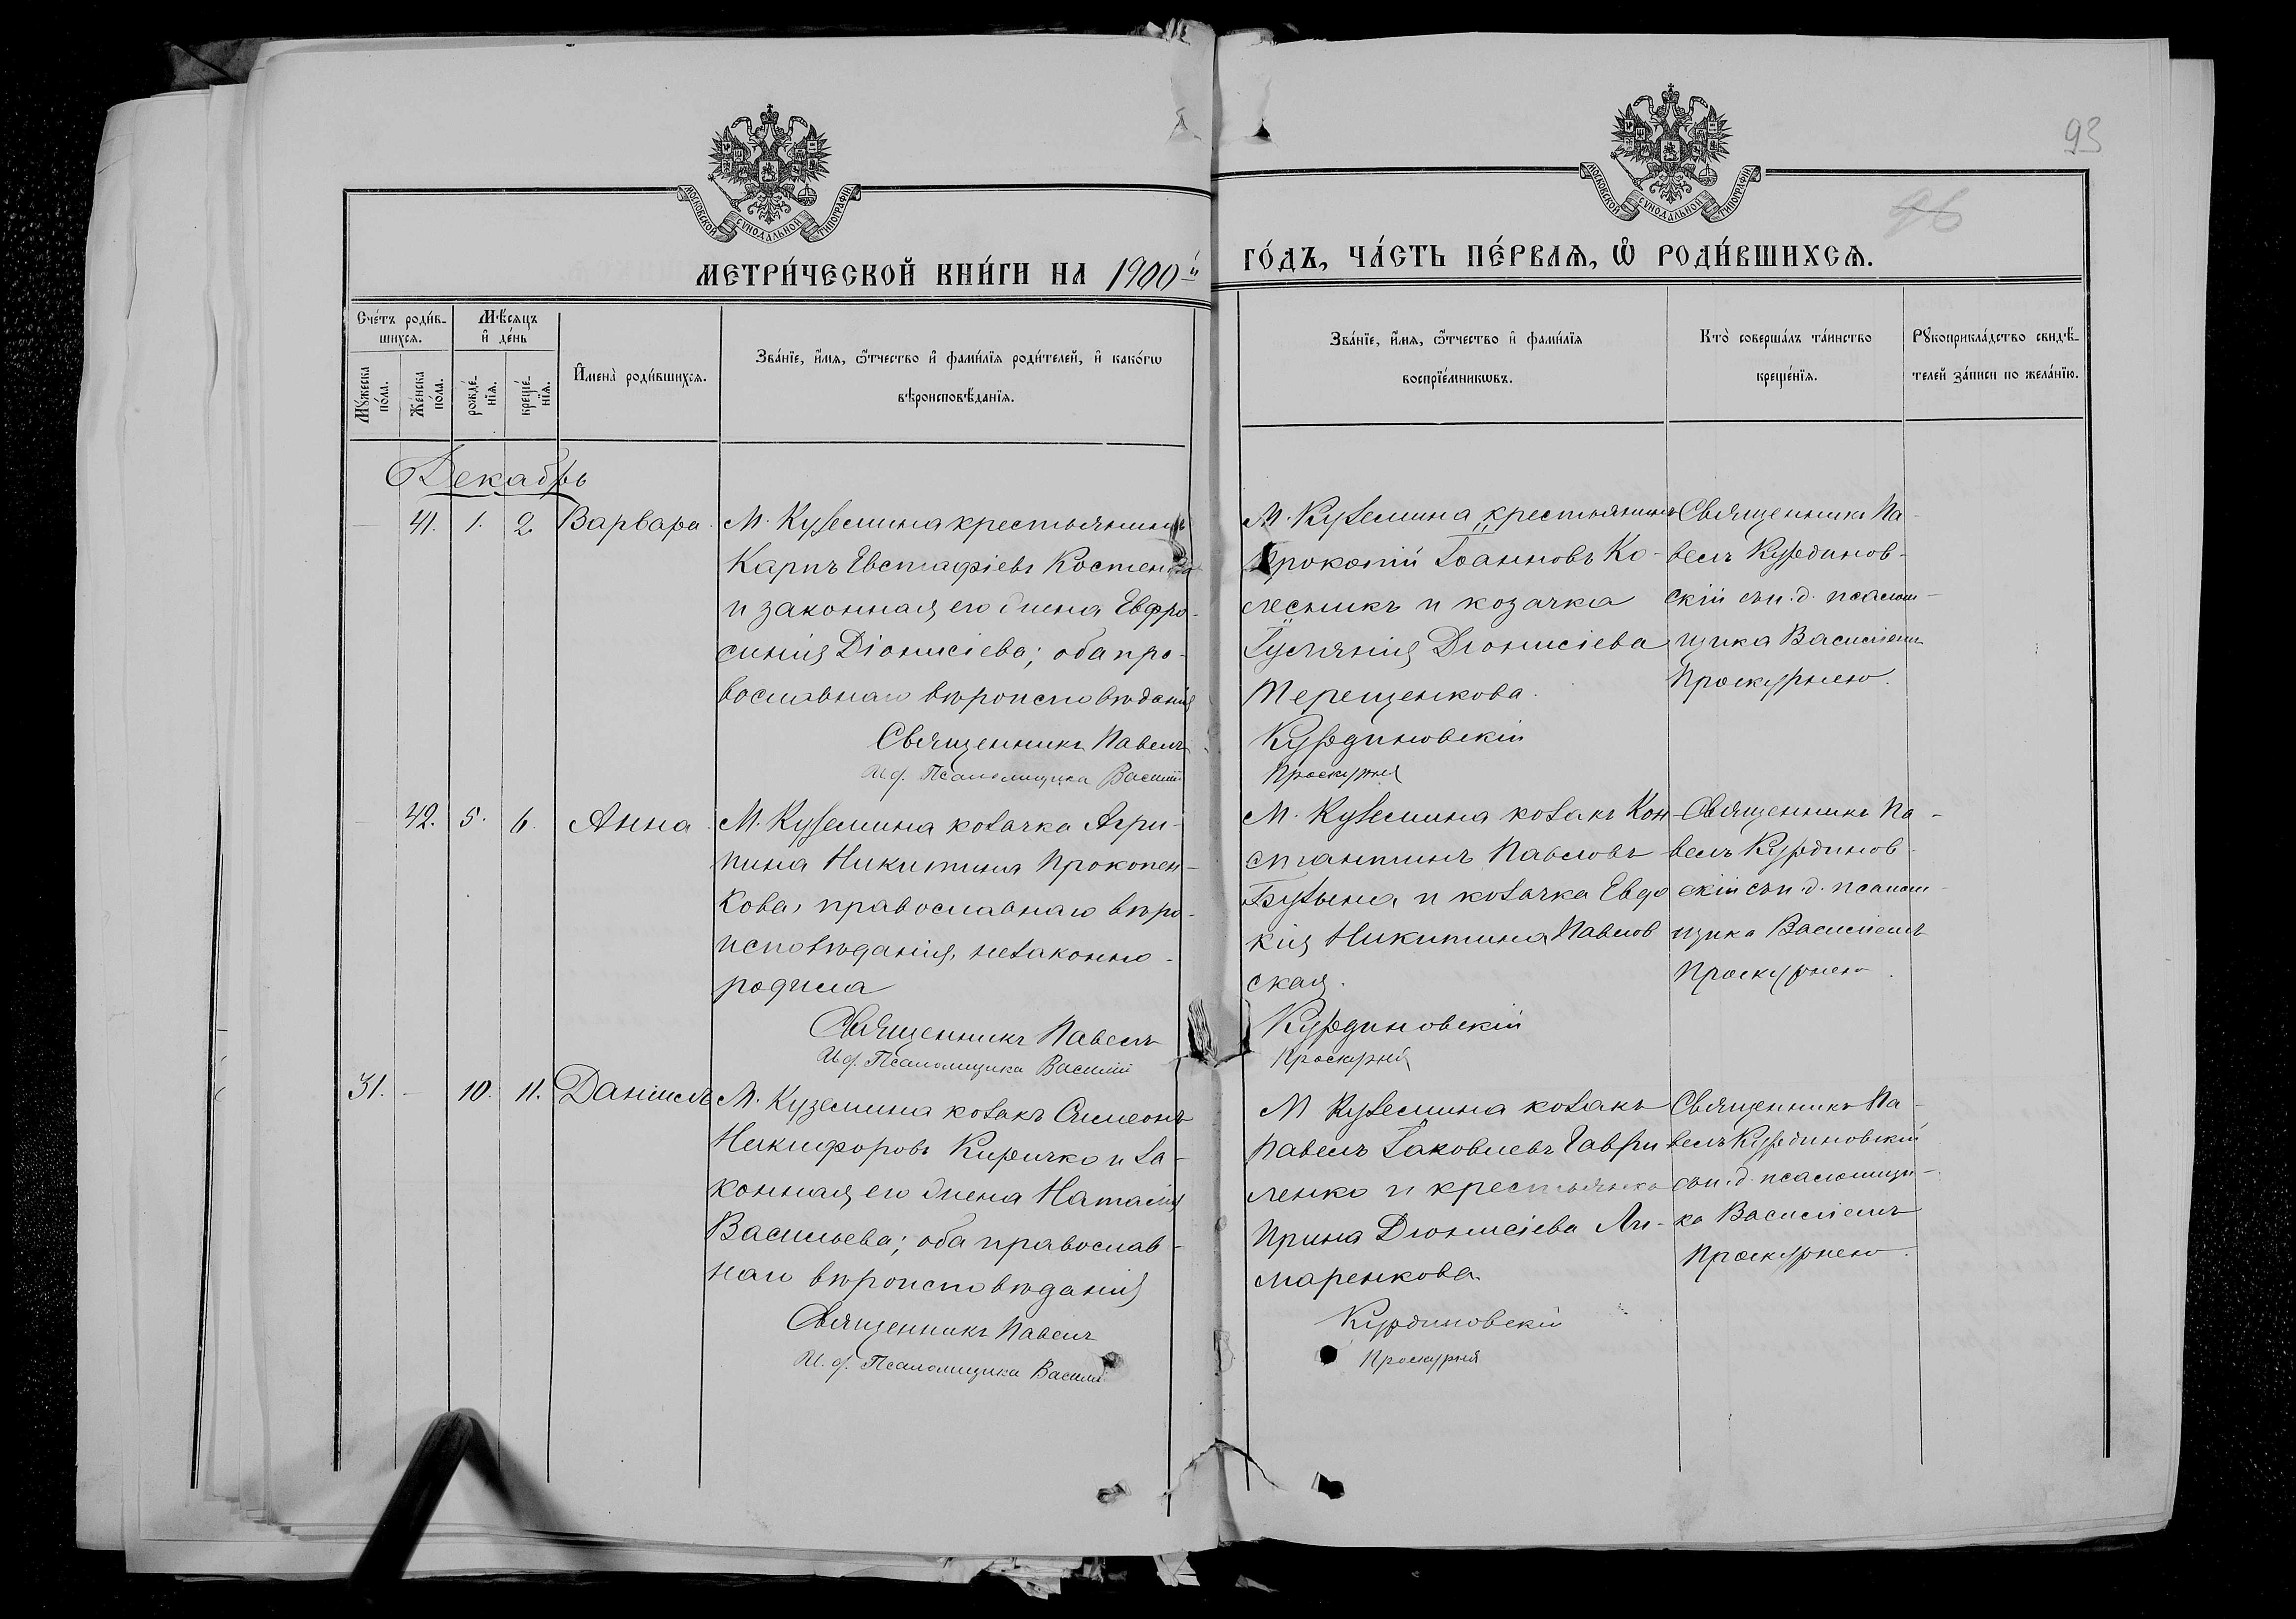 93
96
МОСКОВСКОЙ СУНОДАЛЬНОЙ ТИПОГРАФІИ
МОСКОВСКОЙ СУНОДАЛЬНОЙ ТИПОГРАФІИ
МЕТРИ́ЧЕСКОЙ КНИ́ГИ НА 1900й ГО́ДЪ, ЧА́СТЬ ПЕ́РВАѦ, Ѡ РОДИ́ВШИХСѦ.
Сче́тъ роди́в-
шихсѧ.
Мꙋ́жеска по́ла.
Же́нска по́ла.
Мѣ́сѧцъ и҆ де́нь
рожде́-нїѧ.
креще́-нїѧ.
И҆мена̀ роди́вшихсѧ.
Зва́нїе, и҆́мѧ, ѻ҆́тчество и҆ фами́лїѧ роди́телей, и҆ како́гѡ
вѣроисповѣ́данїѧ.
Зва́нїе, и҆́мѧ, ѻ҆́тчество и҆ фами́лїѧ
воспрїе́мникѡвъ.
Кто̀ соверша́лъ та́инство
креще́нїѧ.
Рꙋкоприкла́дство свидѣ́-
телей за́писи по жела́нїю.
Декабрь
41. 1. 2. Варвара.
М. Куземина крестьянинъ
Карпъ Евстафіевъ Костенко
и законная его жена Евфро-
синія Діонисіева; оба пра-
вославнаго вѣроисповѣданія
Священникъ Павелъ
И.д. Псаломщика Василій
М. Куземина, крестьянинъ
Прокопій Іоанновъ Ко-
лесникъ и козачка
Іуліанія Діонисіева
Терещенкова.
Курдиновскій
Проскурня
Священникъ Па-
велъ Курдинов-
скій съ и.д. псалом-
щика Василіемъ
Проскурнею.
42. 5. 6. Анна.
М. Куземина козачка Агри-
пина Никитина Прокопен-
кова, православнаго вѣро-
исповѣданія, незаконно-
родила
Священникъ Павелъ
И.д. Псаломщика Василій
М. Куземина козакъ Кон-
стантинъ Павловъ
Бузына и козачка Евдо
кія Никитина Павлов
ская.
Курдиновскій
Проскурня
Священникъ Па-
велъ Курдинов-
скій съ и.д. псалом-
щика Василіемъ
Проскурнею.
31. - 10. 11. Даніилъ
М. Куземина козакъ Симеонъ
Никифоровъ Киричко и за-
конная его жена Наталія
Васильева; оба православ-
наго вѣроисповѣданія
Священникъ Павелъ
И.д. Псаломщика Василій
М Куземина козакъ
Павелъ Іаковлевъ Гаври
ленко и крестьянка
Ирина Діонисіева Ли-
маренкова.
Курдиновскій
Проскурня
Священникъ Па-
велъ Курдиновскій
съ и.д. псаломщи-
ка Василіемъ
Проскурнею.